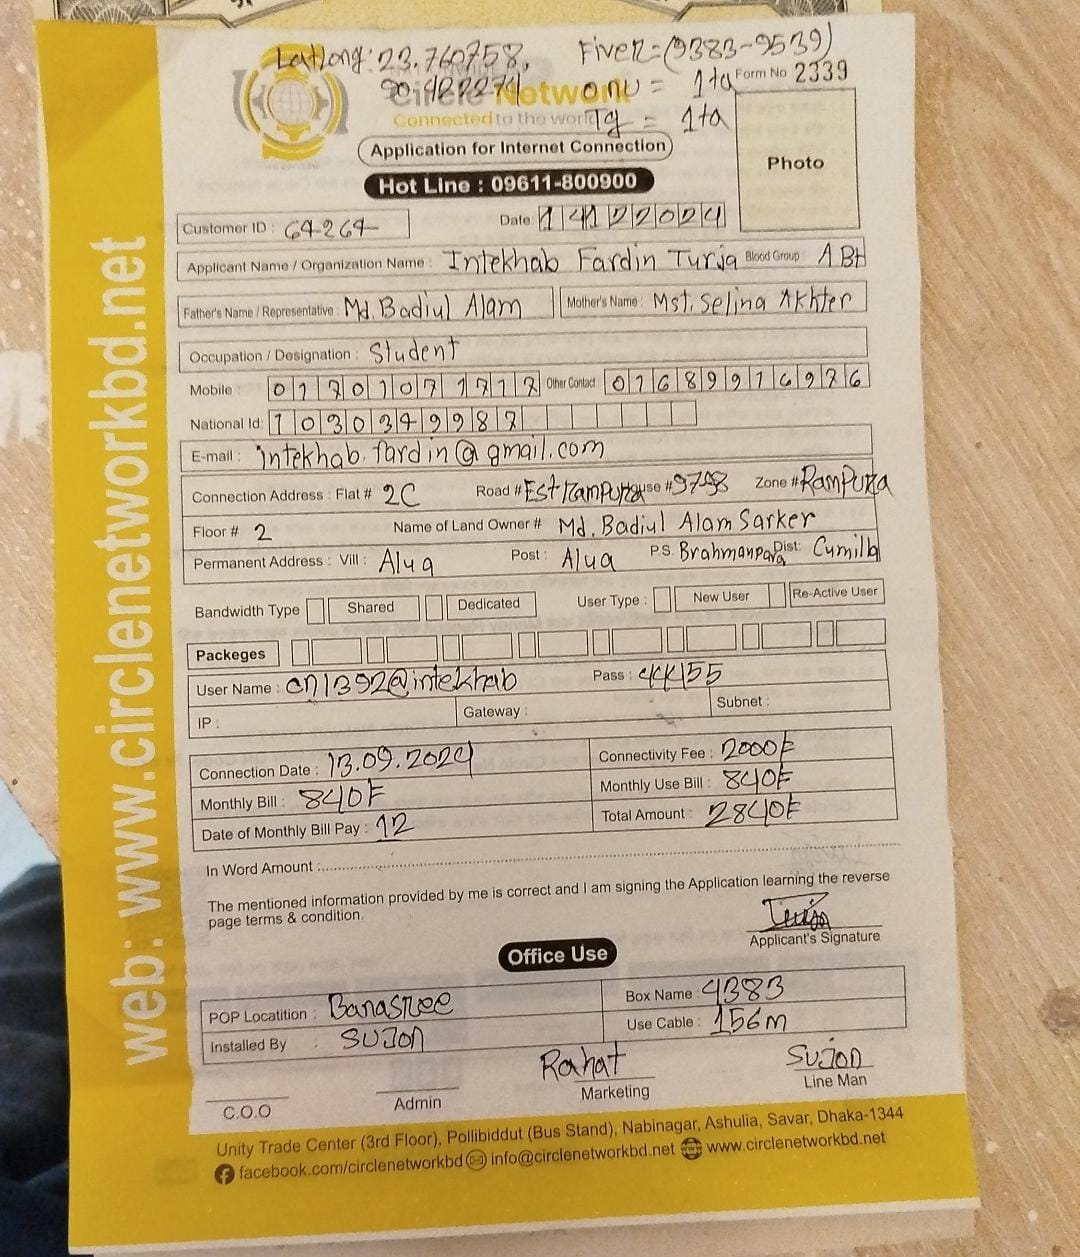 Latlong: 23.760758, Fiver=(9383-9539)
90.422274 onu = 1ta Form No 2339
Circle Network
Connected to the world Tg = 1ta
Application for Internet Connection
Photo
Hot Line : 09611-800900
Customer ID : 64264 Date: 14122024
Applicant Name / Organization Name : Intekhab Fardin Turja Blood Group: AB+
Father's Name / Representative : Md. Badiul Alam Mother's Name : Mst. Selina Akhter
Occupation / Designation : Student
Mobile : Other Contact:
National Id:
E-mail : intekhab.fardin@gmail.com
Connection Address : Flat # 2C Road # Est Rampura House # Zone # Rampura
Floor # 2 Name of Land Owner # Md. Badiul Alam Sarker
Permanent Address : Vill : Alua Post : Alua P.S. Brahmanpara Dist: Cumilla
Bandwidth Type Shared Dedicated User Type : New User Re-Active User
Packeges
User Name : cn1392@intekhab Pass :
IP : Gateway : Subnet :
Connection Date : 13.09.2024 Connectivity Fee : 2000৳
Monthly Bill : 840৳ Monthly Use Bill : 840৳
Date of Monthly Bill Pay : 12 Total Amount : 2840৳
In Word Amount :
The mentioned information provided by me is correct and I am signing the Application learning the reverse
page terms & condition.
Applicant's Signature
Office Use
POP Locatition : Banasree Box Name : 9383
Installed By : SUJON Use Cable : 156m
Rahat Sujon
C.O.O Admin Marketing Line Man
Unity Trade Center (3rd Floor), Pollibiddut (Bus Stand), Nabinagar, Ashulia, Savar, Dhaka-1344
facebook.com/circlenetworkbd info@circlenetworkbd.net www.circlenetworkbd.net
web: www.circlenetworkbd.net